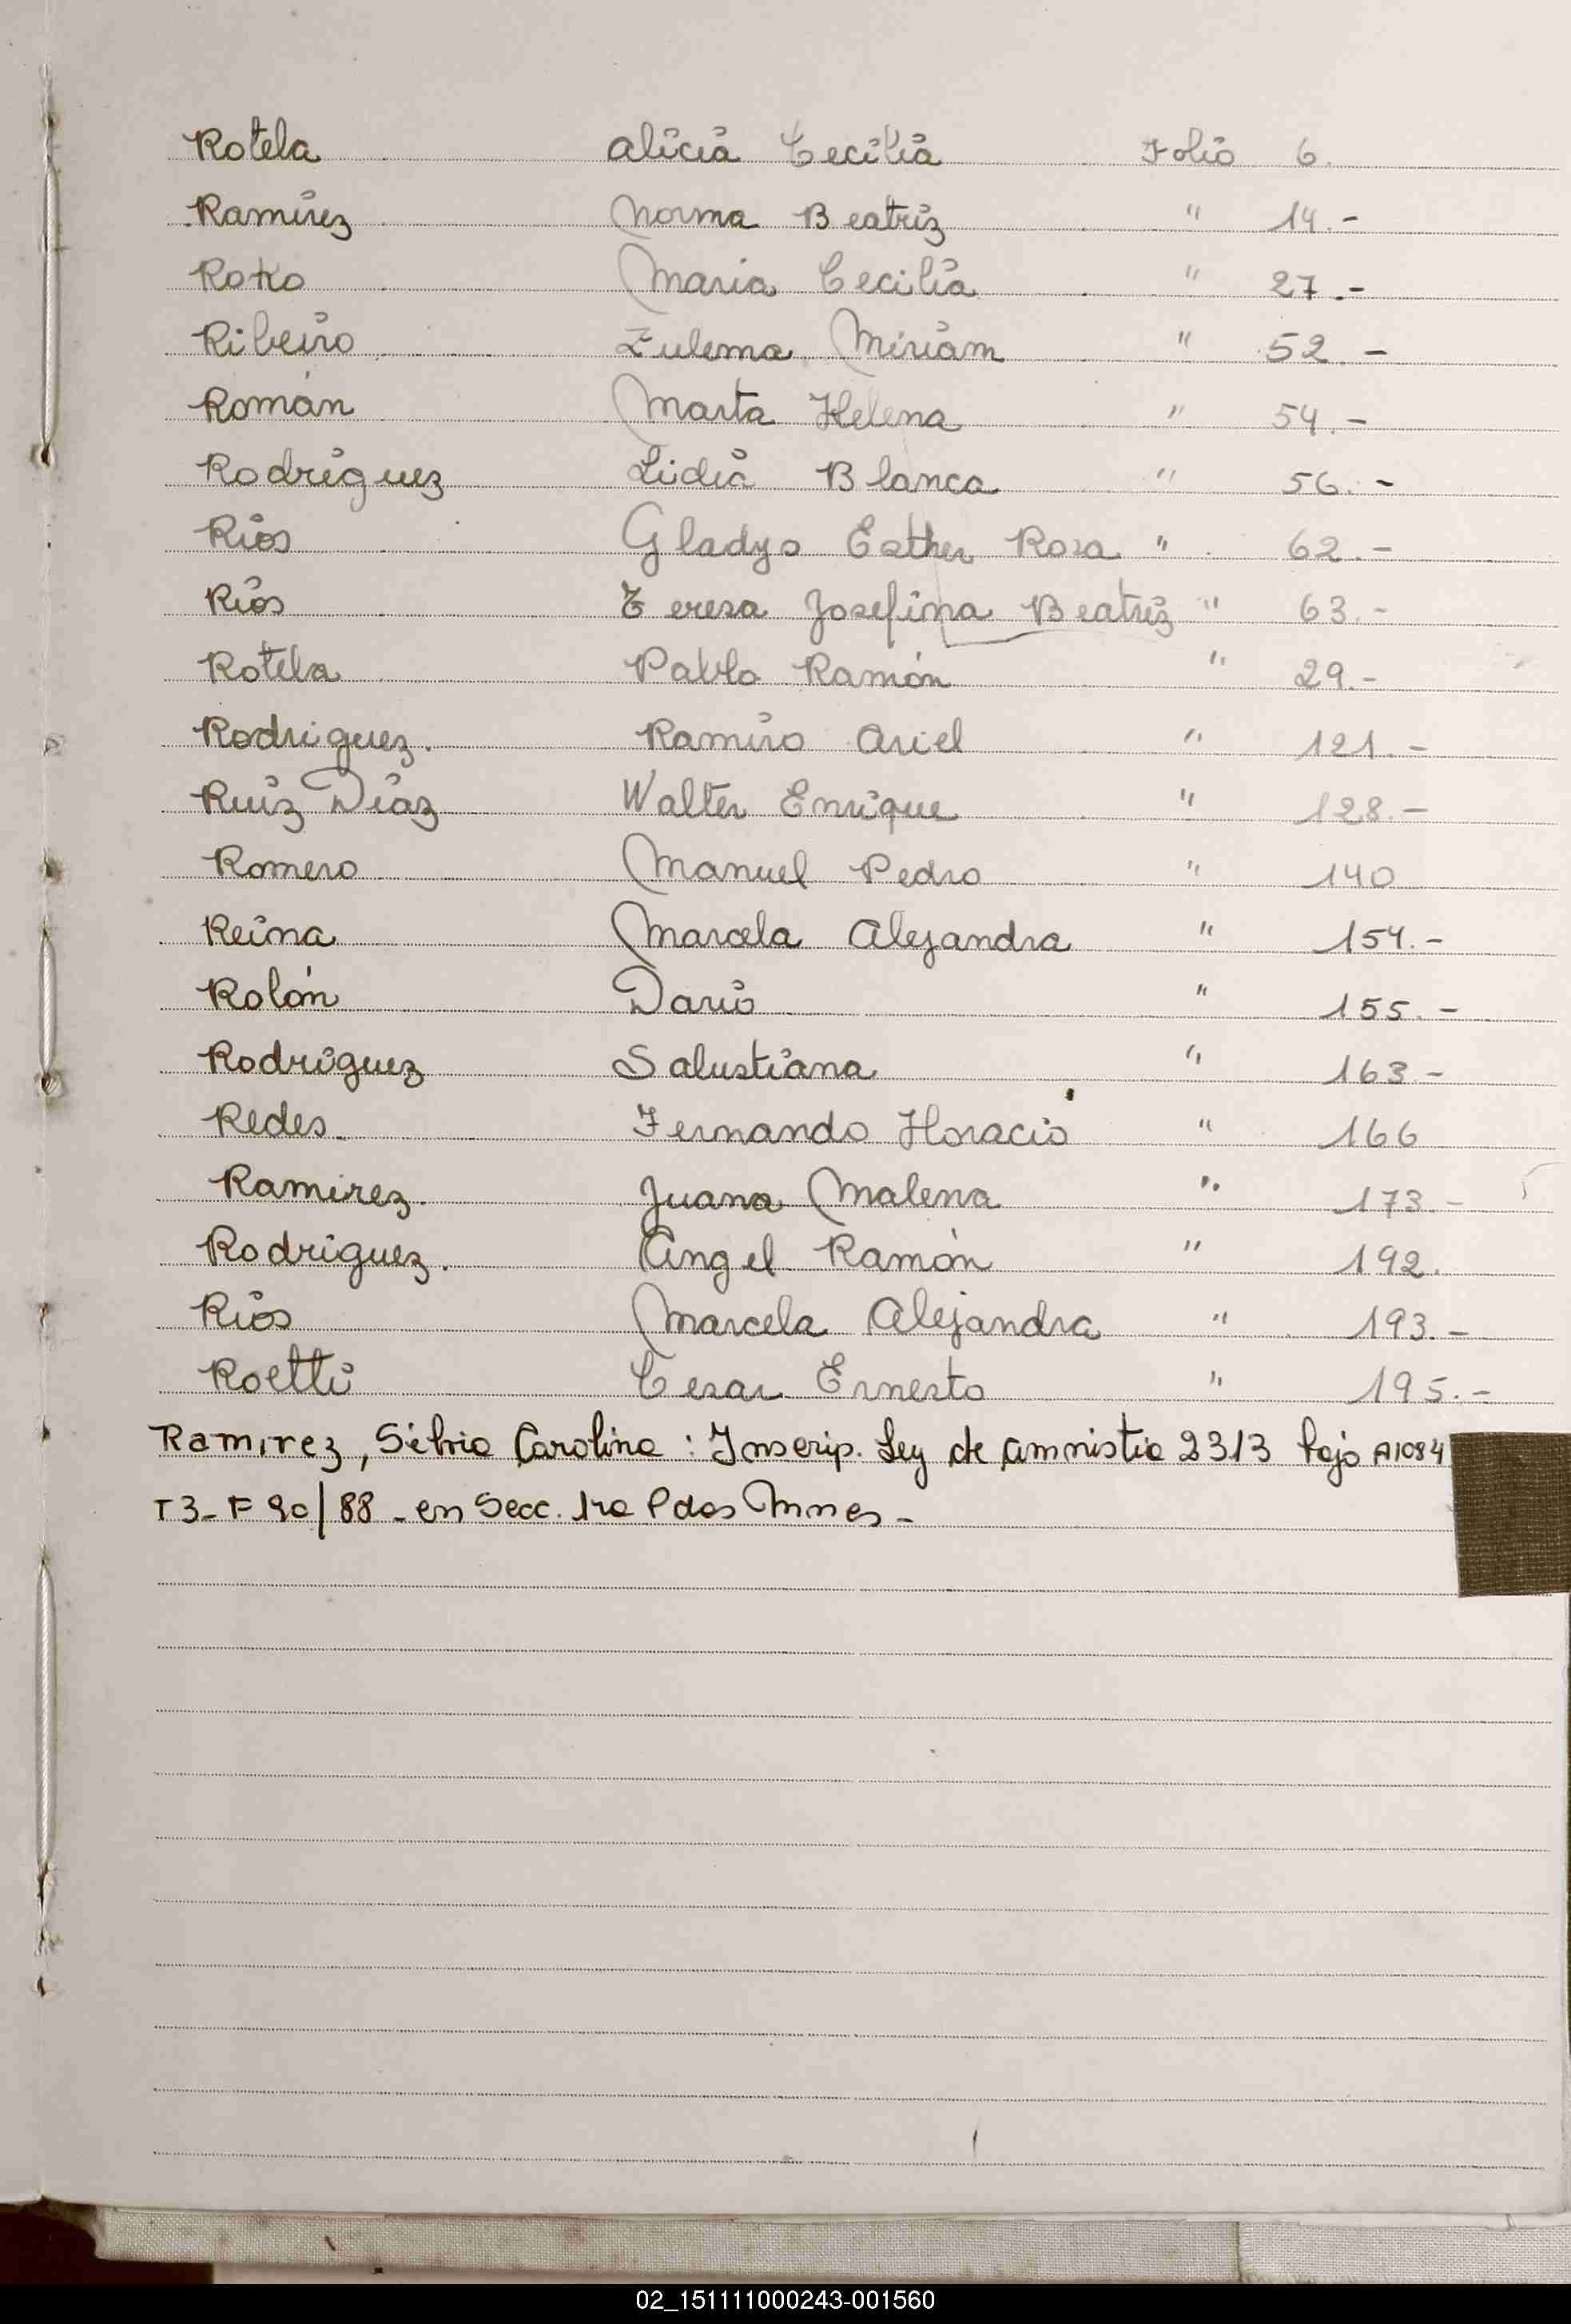 Rotela Alicia Cecilia Folio 6.
Ramírez Norma Beatriz " 14.-
Rotto María Cecilia " 27.-
Ribeiro Zulema Miriam " 52.-
Román Marta Helena " 54.-
Rodríguez Lidia Blanca " 56.-
Ríos Gladys Esther Rosa " 62.-
Ríos Teresa Josefina Beatriz " 63.-
Rotela Pablo Ramón " 29.-
Rodriguez. Ramiro Ariel " 121.-
Ruiz Díaz Walter Enrique " 128.-
Romero Manuel Pedro " 140
Reina Marcela Alejandra " 154.-
Rolón Darío " 155.-
Rodríguez Salustiana " 163-
Redes. Fernando Horacio " 166
Ramirez. Juana Malena " 173.-
Rodriguez. Angel Ramón " 192.
Ríos Marcela Alejandra " 193.-
Roetti Cesar Ernesto " 195.-
Ramirez, Silvia Carolina: Inscrip. Ley de amnistia 2313 bajo A1084
T3-F90/88-en Secc. 1ra Pdas Mnes-
02_151111000243-001560